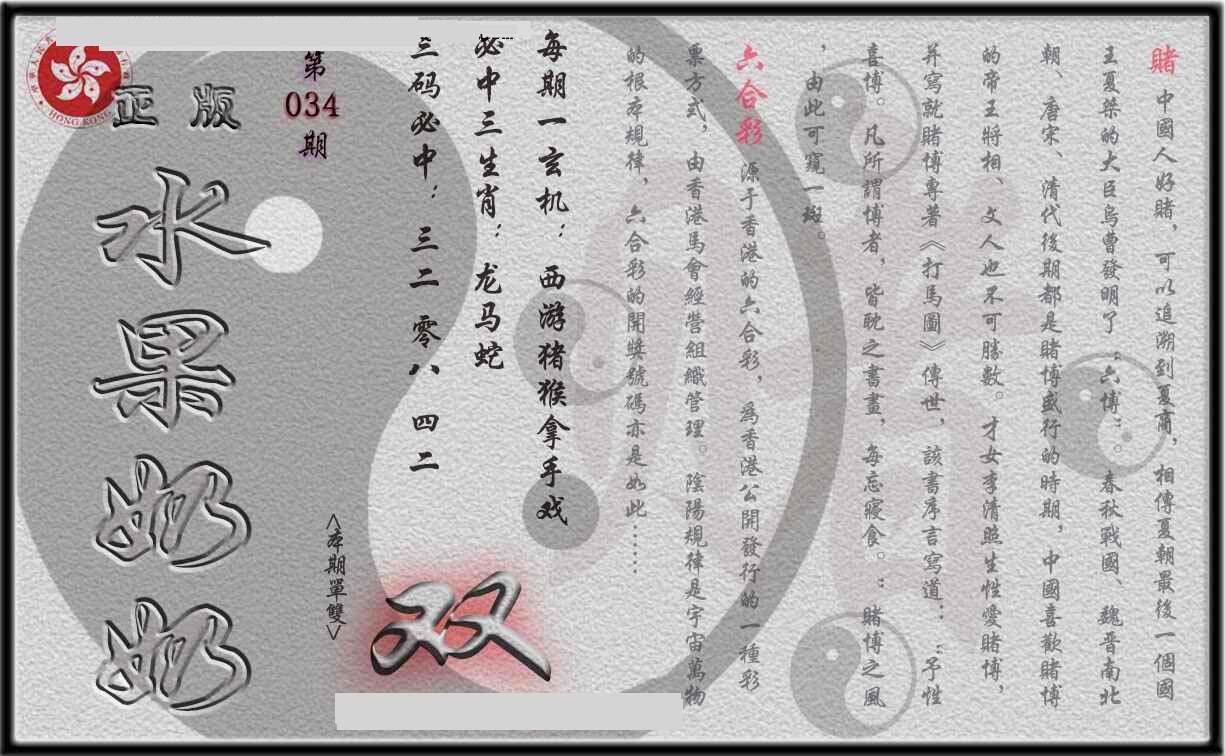 賭 中國人好賭，可以追溯到夏商，相傳夏朝最後一個國
王夏桀的大臣烏曹發明了“六博”。春秋戰國、魏晋南北
朝、唐宋、清代後期都是賭博盛行的時期，中國喜歡賭博
的帝王將相、文人也不可勝數。才女李清照生性愛賭博，
并寫就賭博專著《打馬圖》傳世，該書序言寫道：“予性
喜博。凡所謂博者，皆耽之書畫，每忘寢食。”賭博之風
，由此可窺一斑。
六合彩 源于香港的六合彩，為香港公開發行的一種彩
票方式，由香港馬會經營組織管理。陰陽規律是宇宙萬物
的根本規律，六合彩的開獎號碼亦是如此……
每期一玄机：西游猪猴拿手戏
必中三生肖：龙马蛇
三码必中：三二 零八 四二
第
034
期
<本期單雙>
双
正版
水果奶奶
HONG KONG